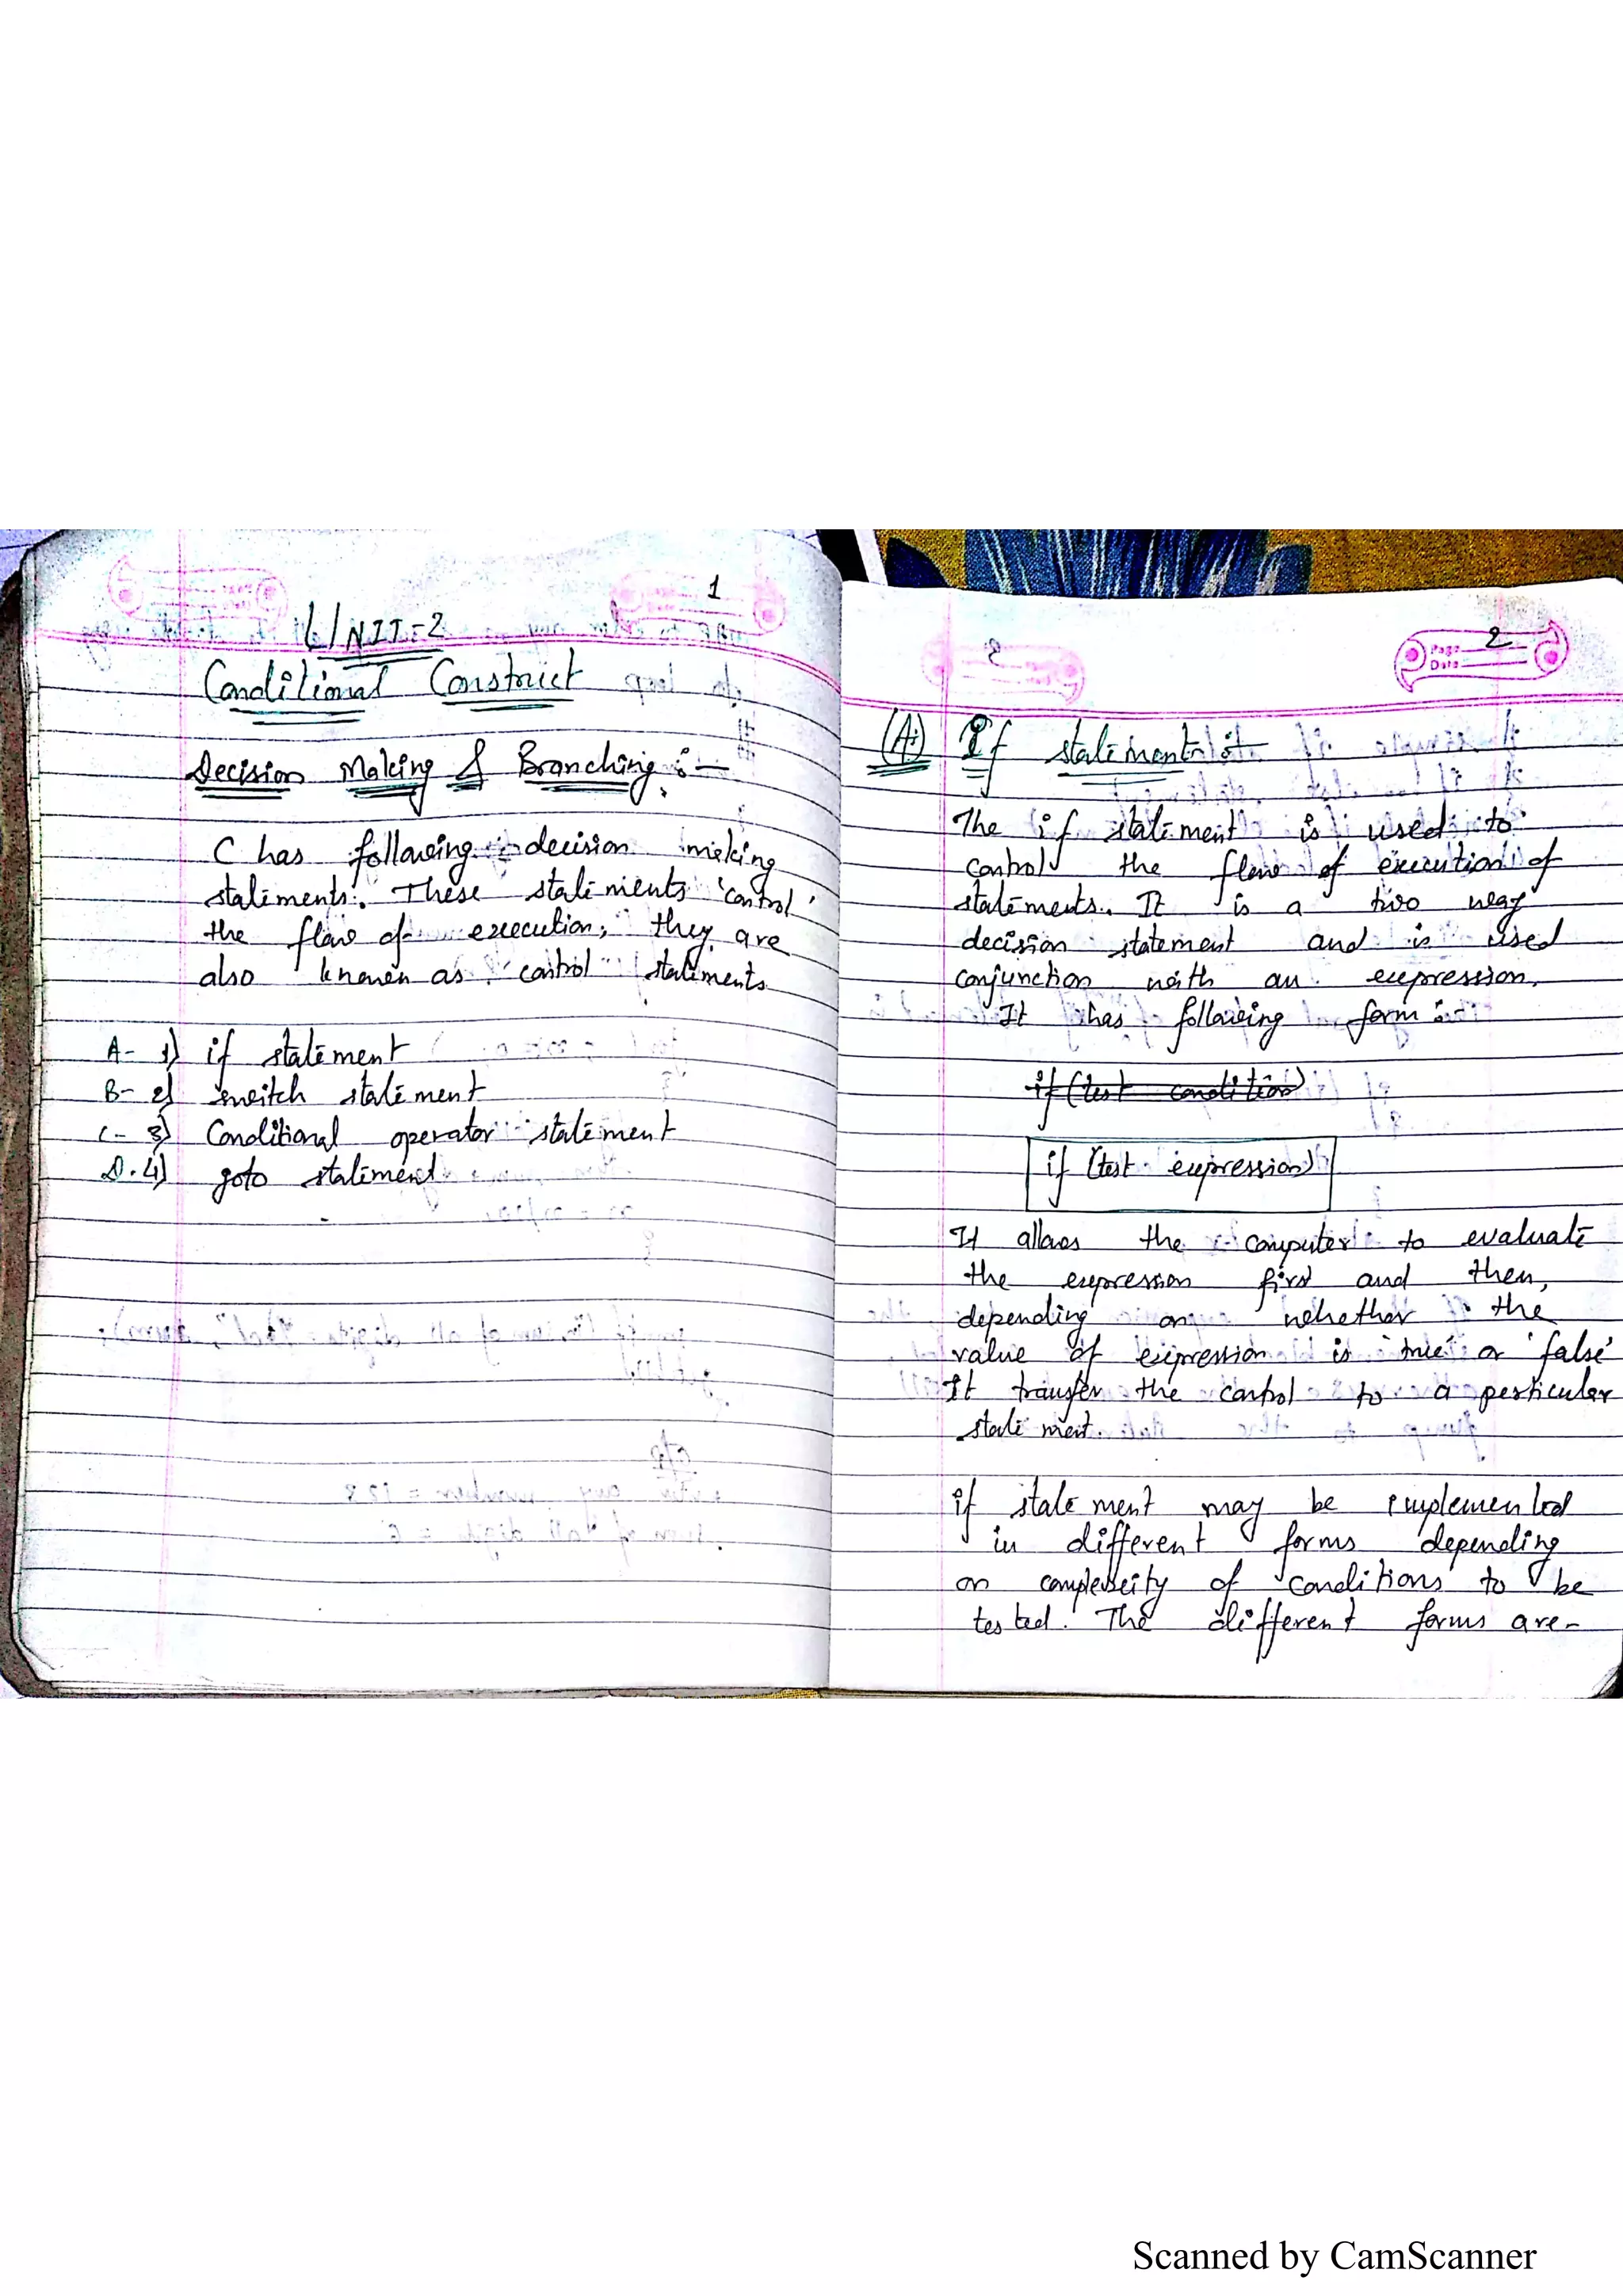 1
UNIT-2
Conditional Construct
Decision Making & Branching :-
C has following decision making
statements. These statements 'control'
the flow of execution, they are
also known as control statements
A- 1) if statement
B- 2) switch statement
C- 3) Conditional operator statement
D. 4) goto statement
Page
Date
2
(A) If statement :-
The if statement is used to
control the flow of execution of
statements. It is a two way
decision statement and is used
conjunction with an expression.
It has following form :-
if (test condition)
if (test expression)
It allows the computer to evaluate
the expression first and then,
depending on whether the
value of expression is true or false
It transfer the control to a perticular
statement.
if statement may be implemented
in different forms depending
on complexity of conditions to be
tested. The different forms are-
Scanned by CamScanner